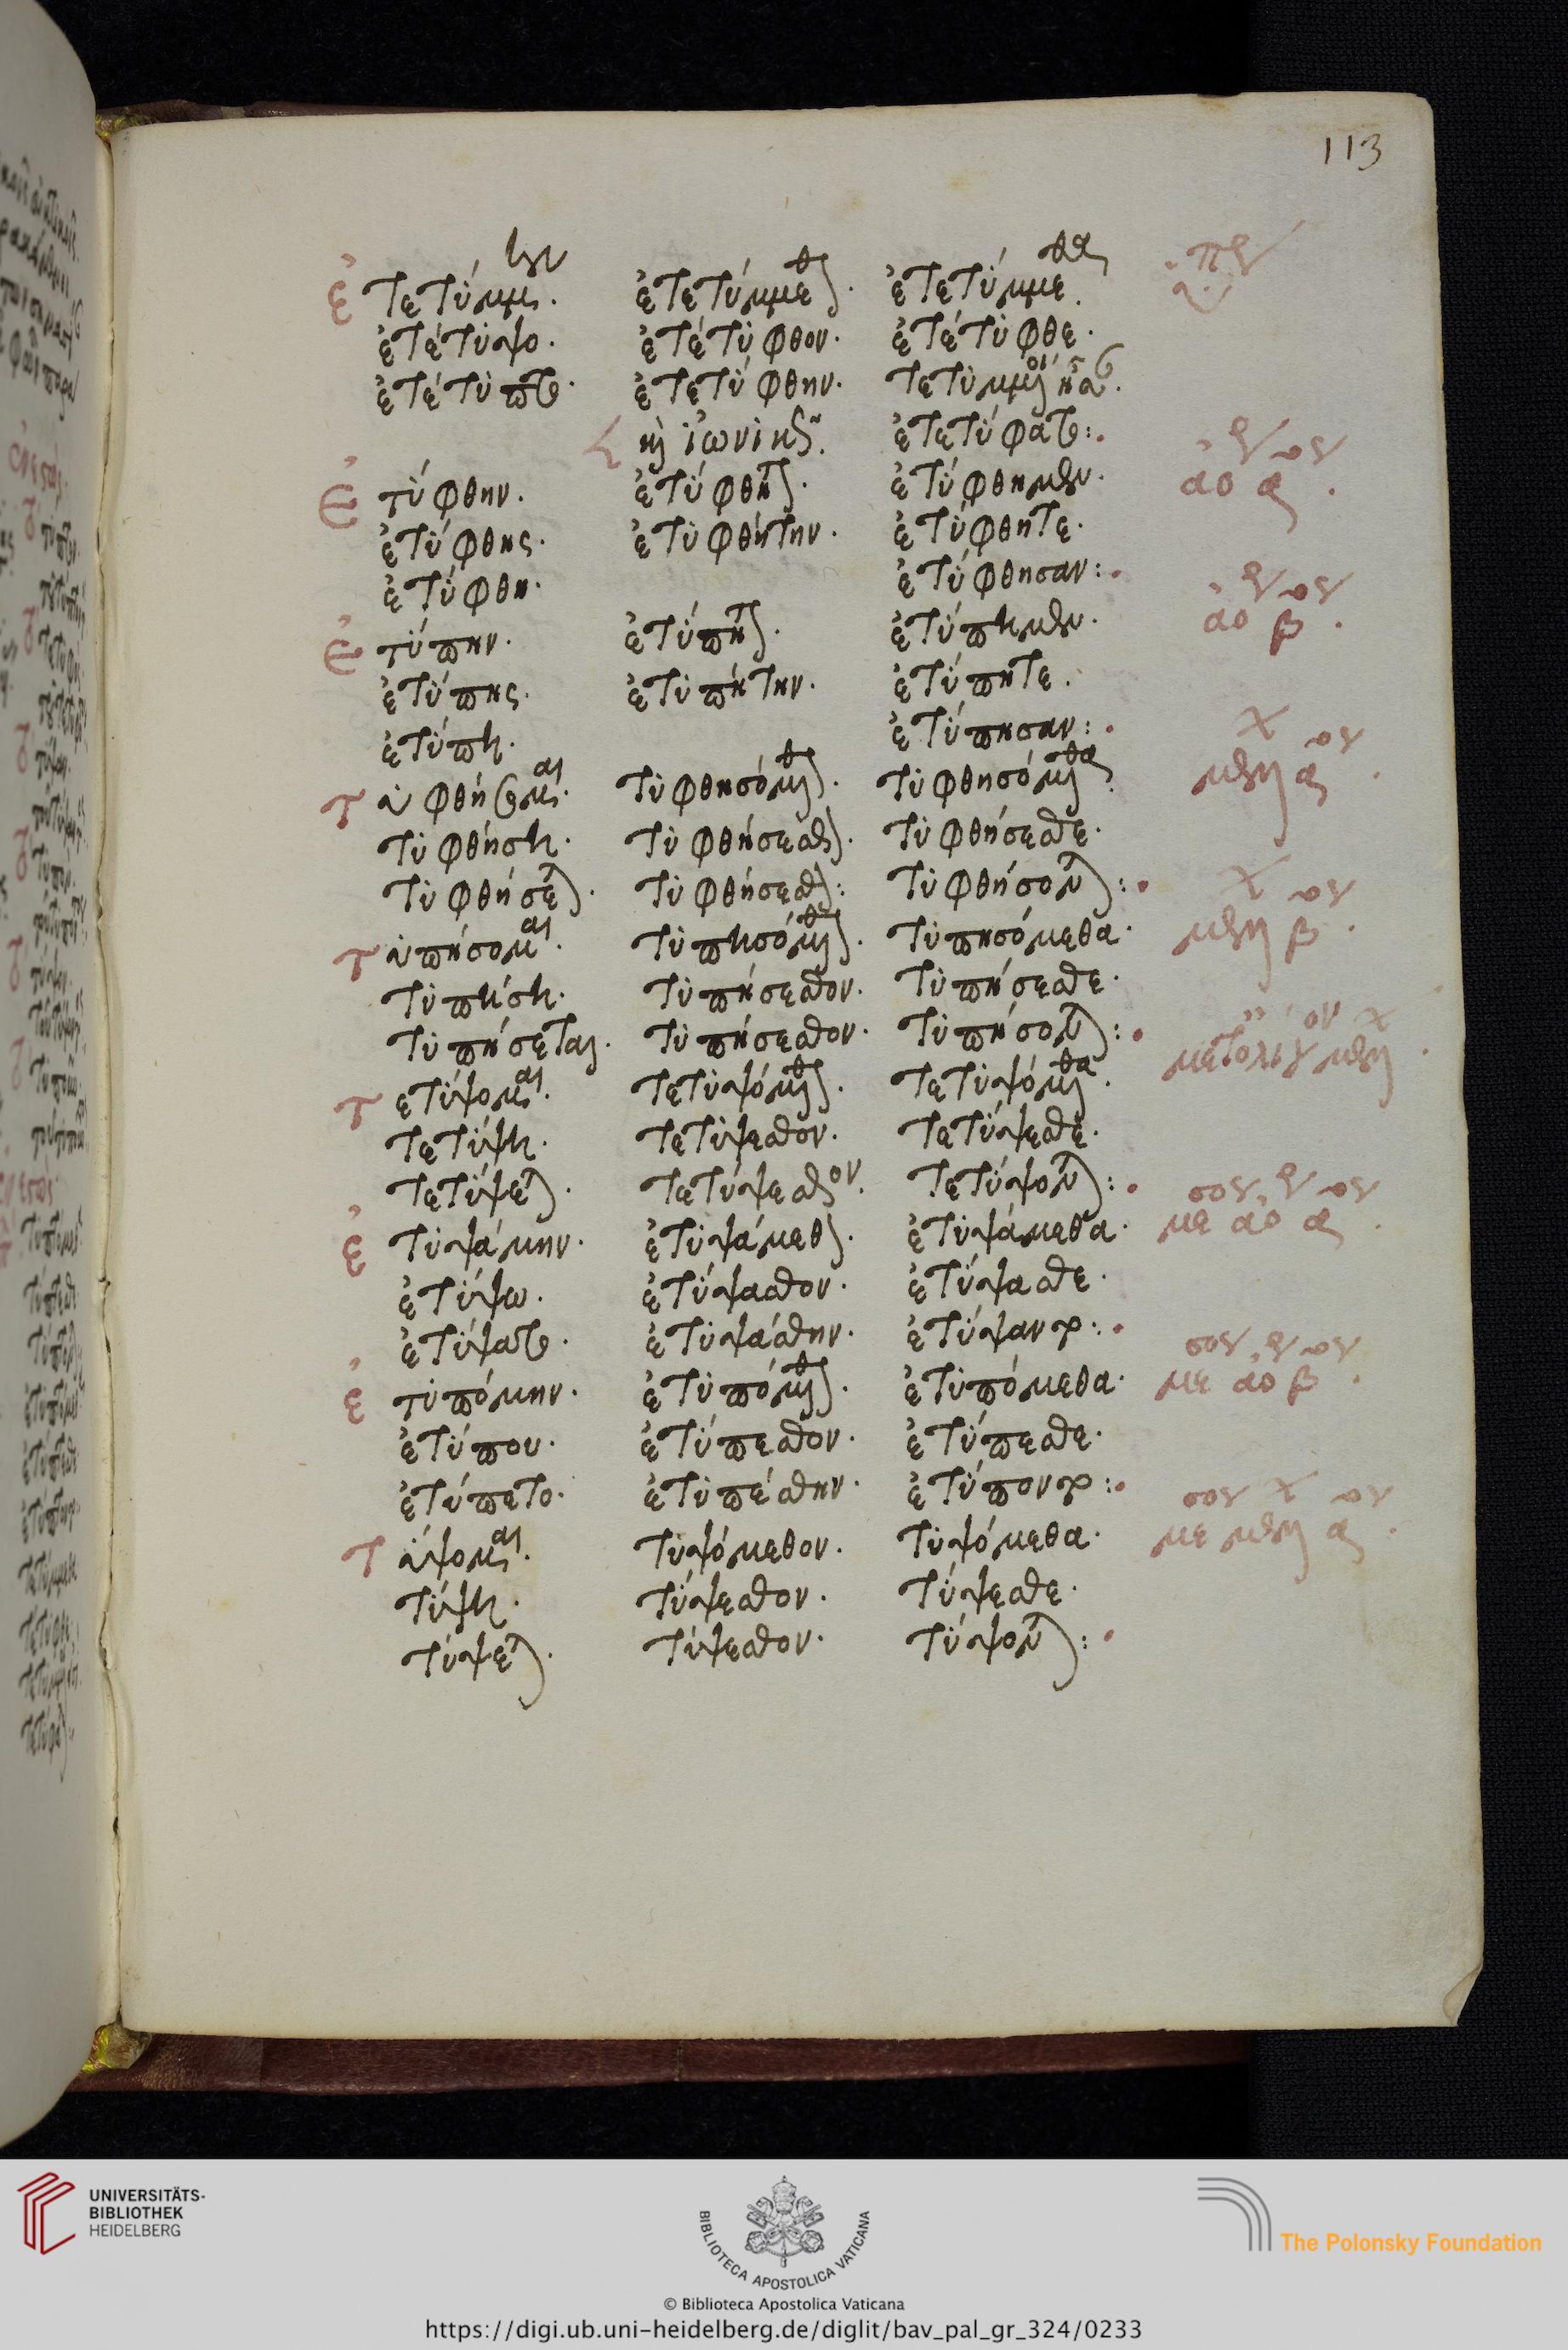 113
ἐτετύμμην. ἐτετύμμεθον. ἐτετύμμεθα.
ἐτέτυψο. ἐτέτυφθον. ἐτέτυφθε.
ἐτέτυπτο. ἐτετύφθην. τετυμμένοι ἦσαν.
καὶ ἰωνικῶς. ἐτετύφατο:
ἐτύφθην. ἐτύφθητον. ἐτύφθημεν. ἀο α.
ἐτύφθης. ἐτυφθήτην. ἐτύφθητε.
ἐτύφθη. ἐτύφθησαν:
ἐτύπην. ἐτύπητον. ἐτύπημεν. ἀο β.
ἐτύπης. ἐτυπήτην. ἐτύπητε.
ἐτύπη. ἐτύπησαν:
τυφθήσομαι. τυφθησόμεθον. τυφθησόμεθα.
τυφθήσῃ. τυφθήσεσθον. τυφθήσεσθε.
τυφθήσεται. τυφθήσεσθον: τυφθήσονται:
τυπήσομαι. τυπησόμεθον. τυπησόμεθα.
τυπήσῃ. τυπήσεσθον. τυπήσεσθε.
τυπήσεται. τυπήσεσθον. τυπήσονται:
τετύψομαι. τετυψόμεθον. τετυψόμεθα. μετολιγ μελ
τετύψῃ. τετύψεσθον. τετύψεσθε.
τετύψεται. τετύψεσθον. τετύψονται:
ἐτυψάμην. ἐτυψάμεθον. ἐτυψάμεθα. με ἀο α.
ἐτύψω. ἐτύψασθον. ἐτύψασθε.
ἐτύψατο. ἐτυψάσθην. ἐτύψαντο:
ἐτυπόμην. ἐτυπόμεθον. ἐτυπόμεθα. με ἀο β.
ἐτύπου. ἐτύπεσθον. ἐτύπεσθε.
ἐτύπετο. ἐτυπέσθην. ἐτύποντο:
τύψομαι. τυψόμεθον. τυψόμεθα. με μελ α.
τύψῃ. τύψεσθον. τύψεσθε.
τύψεται. τύψεσθον. τύψονται:
UNIVERSITÄTS-
BIBLIOTHEK
HEIDELBERG
BIBLIOTECA APOSTOLICA VATICANA
The Polonsky Foundation
© Biblioteca Apostolica Vaticana
https://digi.ub.uni-heidelberg.de/diglit/bav_pal_gr_324/0233